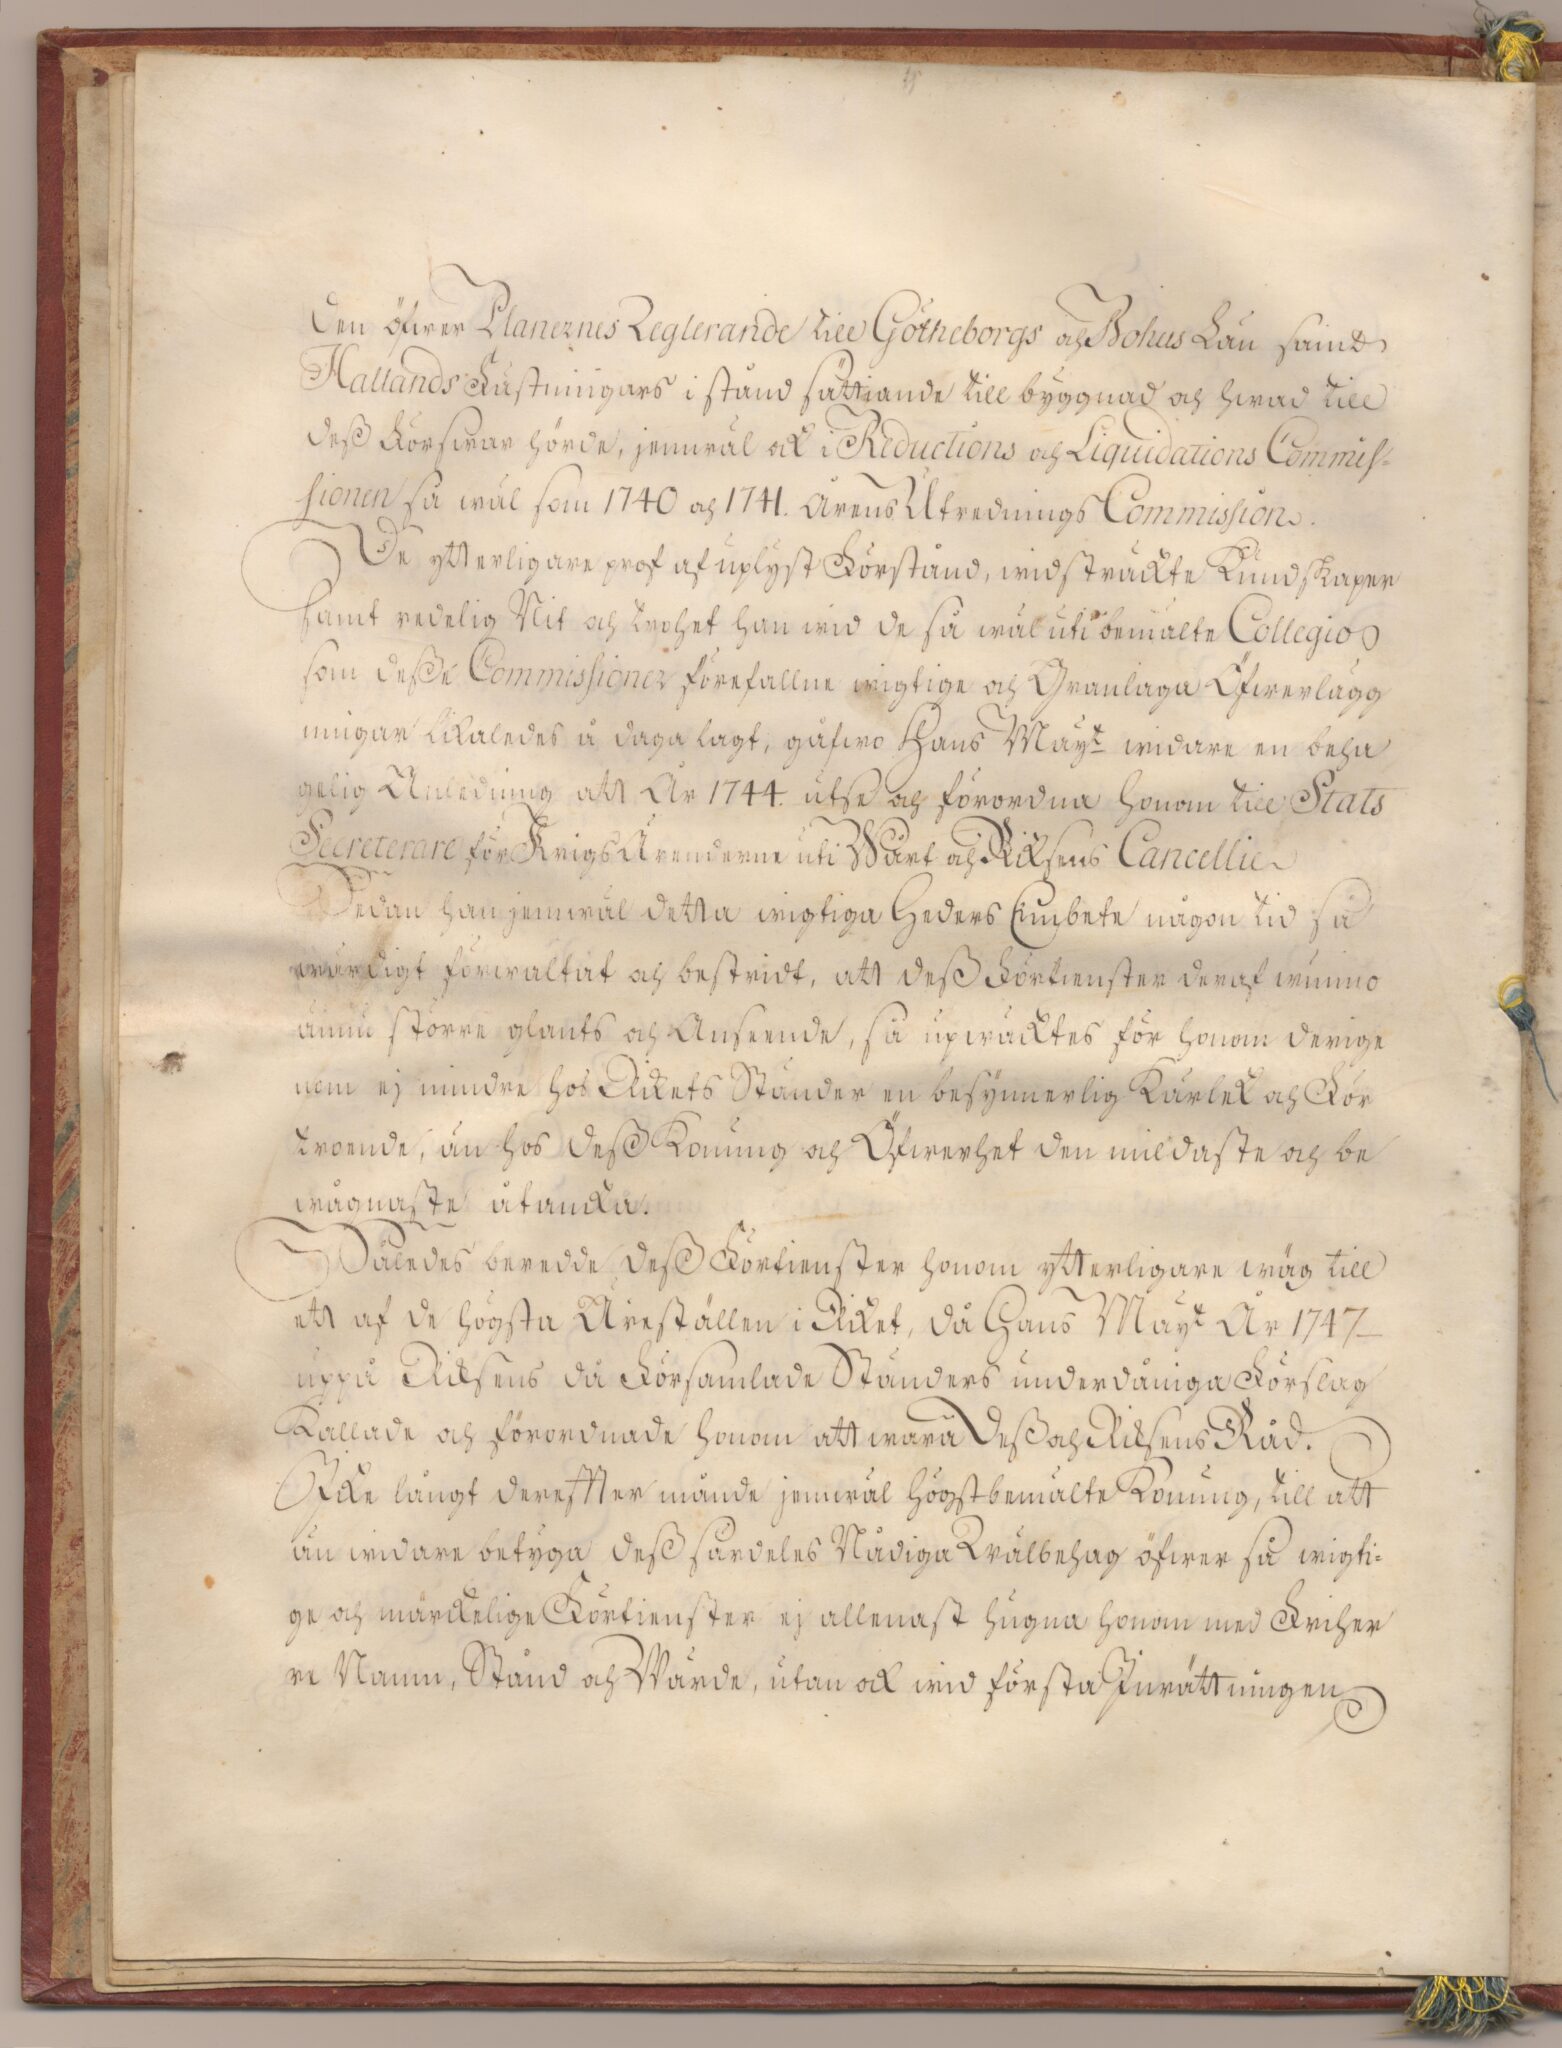 den öfwer Planernes Reglerande till Götheborgs och Bohus Län samt
Hallands Fästningars i stånd sättiande till byggnad och hwad till
deß Förswar hörde, jemwäl ock i Reductions och Liquidations Commis-
sionen så wäl som 1740 och 1741. årens Utrednings Commission.
De ytterligare prof af uplyst Förstånd, widsträckte Kundskaper
samt redelig Nit och trohet han wid de så wäl uti bemälte Collegio
som deße Commissioner förefallne wigtige och Granlaga Öfwerlägg
ningar likaledes å daga lagt, gåfwo Hans Mayt widare en beha
gelig Anledning att År 1744. utse och förordna honom till Stats
Secreterare för Krigs Ärenderne uti Wårt och Riksens Cancellie
Sedan han jemwäl detta wigtiga Heders Embete någon tid så
wärdigt förwaltat och bestridt, att deß Förtienster deraf wunno
ännu större glants och Anseende, så upwäcktes för honom derige
nom ej mindre hos Rikets Ständer en besynnerlig Kärlek och För
troende, än hos deß Konung och Öfwerhet den mildaste och be
wågnaste åtancka.
Således beredde deß Förtienster honom ytterligare wäg till
ett af de högsta Äreställen i Riket, då Hans Mayt År 1747
uppå Riksens då Församlade Ständers underdåniga Förslag
Kallade och förordnade honom att wara Deß och Riksens Råd.
Icke långt derefter månde jemwäl högstbemälte Konung, till att
än widare betyga deß särdeles Nådiga Wälbehag öfwer så wigti-
ge och märckelige Förtienster ej allenast hugna honom med Friher
re Namn, Stånd och Wärde, utan ock wid första Inrättningen